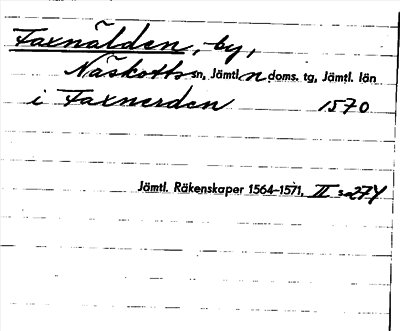 Faxnälden, by,
Näskotts sn, Jämtl. n doms. tg, Jämtl. län
i Faxnerden 1570
Jämtl. Räkenskaper 1564-1571, II s. 274